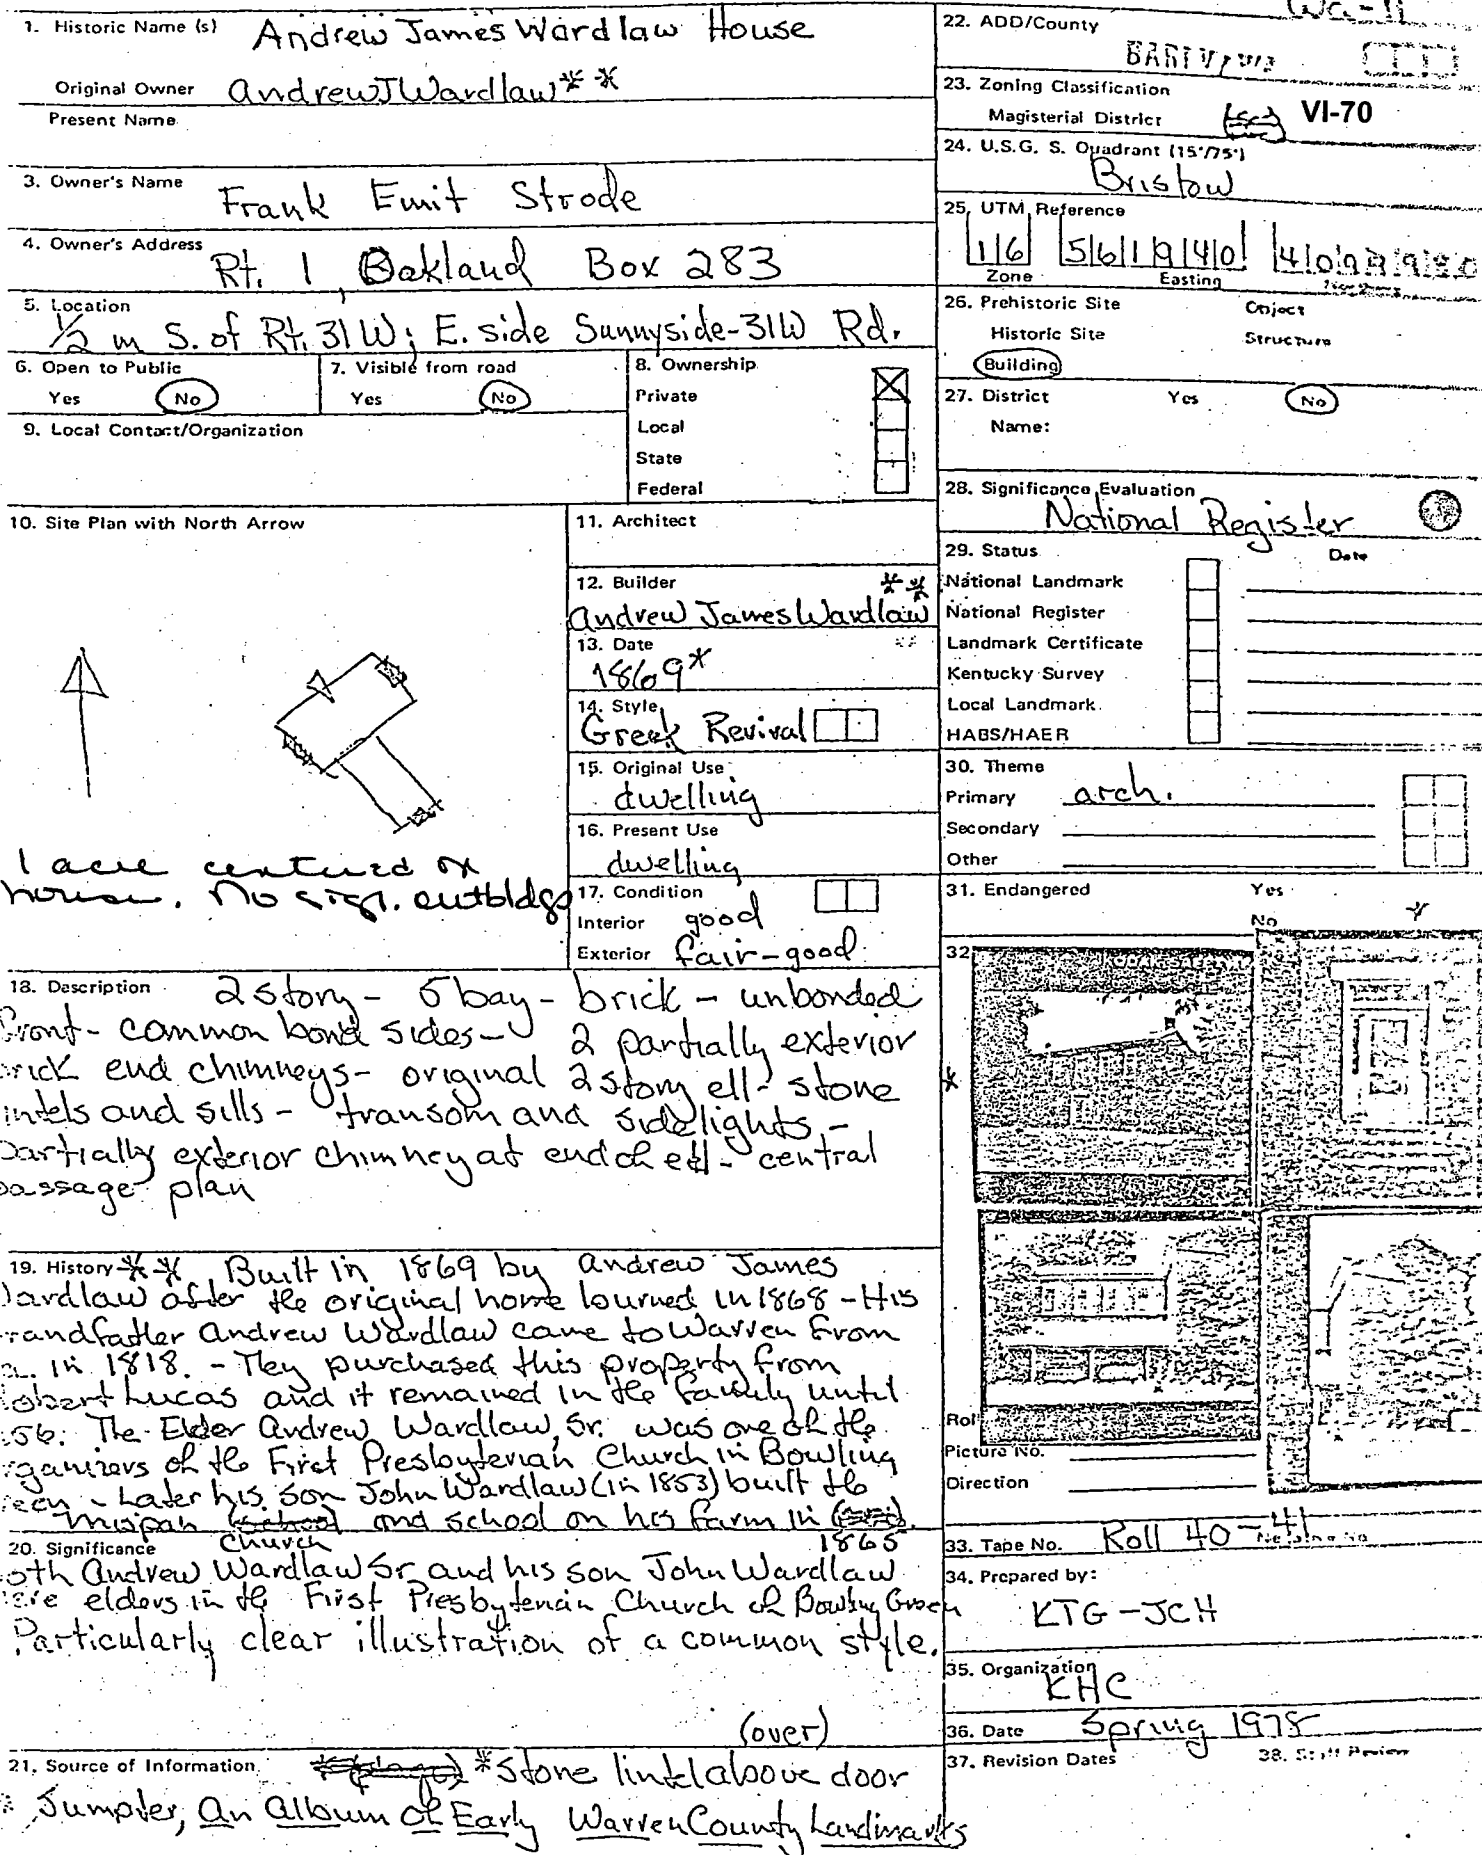 Wa-11
1. Historic Name (s) Andrew James Wardlaw House
Original Owner AndrewJWardlaw**
Present Name
3. Owner's Name Frank Emit Strode
4. Owner's Address Rt. 1, Oakland Box 283
5. Location
1/2 m S. of Rt. 31W; E. side Sunnyside-31W Rd.
6. Open to Public
Yes No
7. Visible from road
Yes No
8. Ownership
Private
Local
State
Federal
9. Local Contact/Organization
10. Site Plan with North Arrow
1 acre centered on
house. No sign. outbldgs
11. Architect
12. Builder **
Andrew James Wardlaw
13. Date
1869*
14. Style
Greek Revival
15. Original Use
dwelling
16. Present Use
dwelling
17. Condition
Interior good
Exterior fair-good
18. Description 2 story - 5 bay - brick - unbonded
front - common bond sides - 2 partially exterior
rick end chimneys - original 2 story ell - stone
intels and sills - transom and sidelights -
partially exterior chimney at end of ell - central
passage plan
19. History ** Built in 1869 by Andrew James
ardlaw after the original home burned in 1868 - His
randfather Andrew Wardlaw came to Warren from
in 1818. - They purchased this property from
obert Lucas and it remained in the family until
56. The Elder Andrew Wardlaw, Sr. was one of the
rganizers of the First Presbyterian Church in Bowling
reen - Later his son John Wardlaw (in 1853) built the
Mispah church and school on his farm in 1865
20. Significance
oth Andrew Wardlaw Sr and his son John Wardlaw
ere elders in the First Presbyterian Church of Bowling Green
Particularly clear illustration of a common style.
(over)
21. Source of Information *Stone lintel above door
Jumpter, An Album of Early Warren County Landmarks
22. ADD/County
23. Zoning Classification
Magisterial District VI-70
24. U.S.G. S. Quadrant (15'/75')
Bristow
25. UTM Reference
16 561940
Zone Easting
26. Prehistoric Site Object
Historic Site Structure
Building
27. District Yes No
Name:
28. Significance Evaluation
National Register
29. Status Date
National Landmark
National Register
Landmark Certificate
Kentucky Survey
Local Landmark
HABS/HAER
30. Theme
Primary arch.
Secondary
Other
31. Endangered Yes
No
32
*
Rol
Picture No.
Direction
33. Tape No. Roll 40-41
34. Prepared by:
KTG-JCH
35. Organization
KHC
36. Date Spring 1978
37. Revision Dates 38. Staff Review